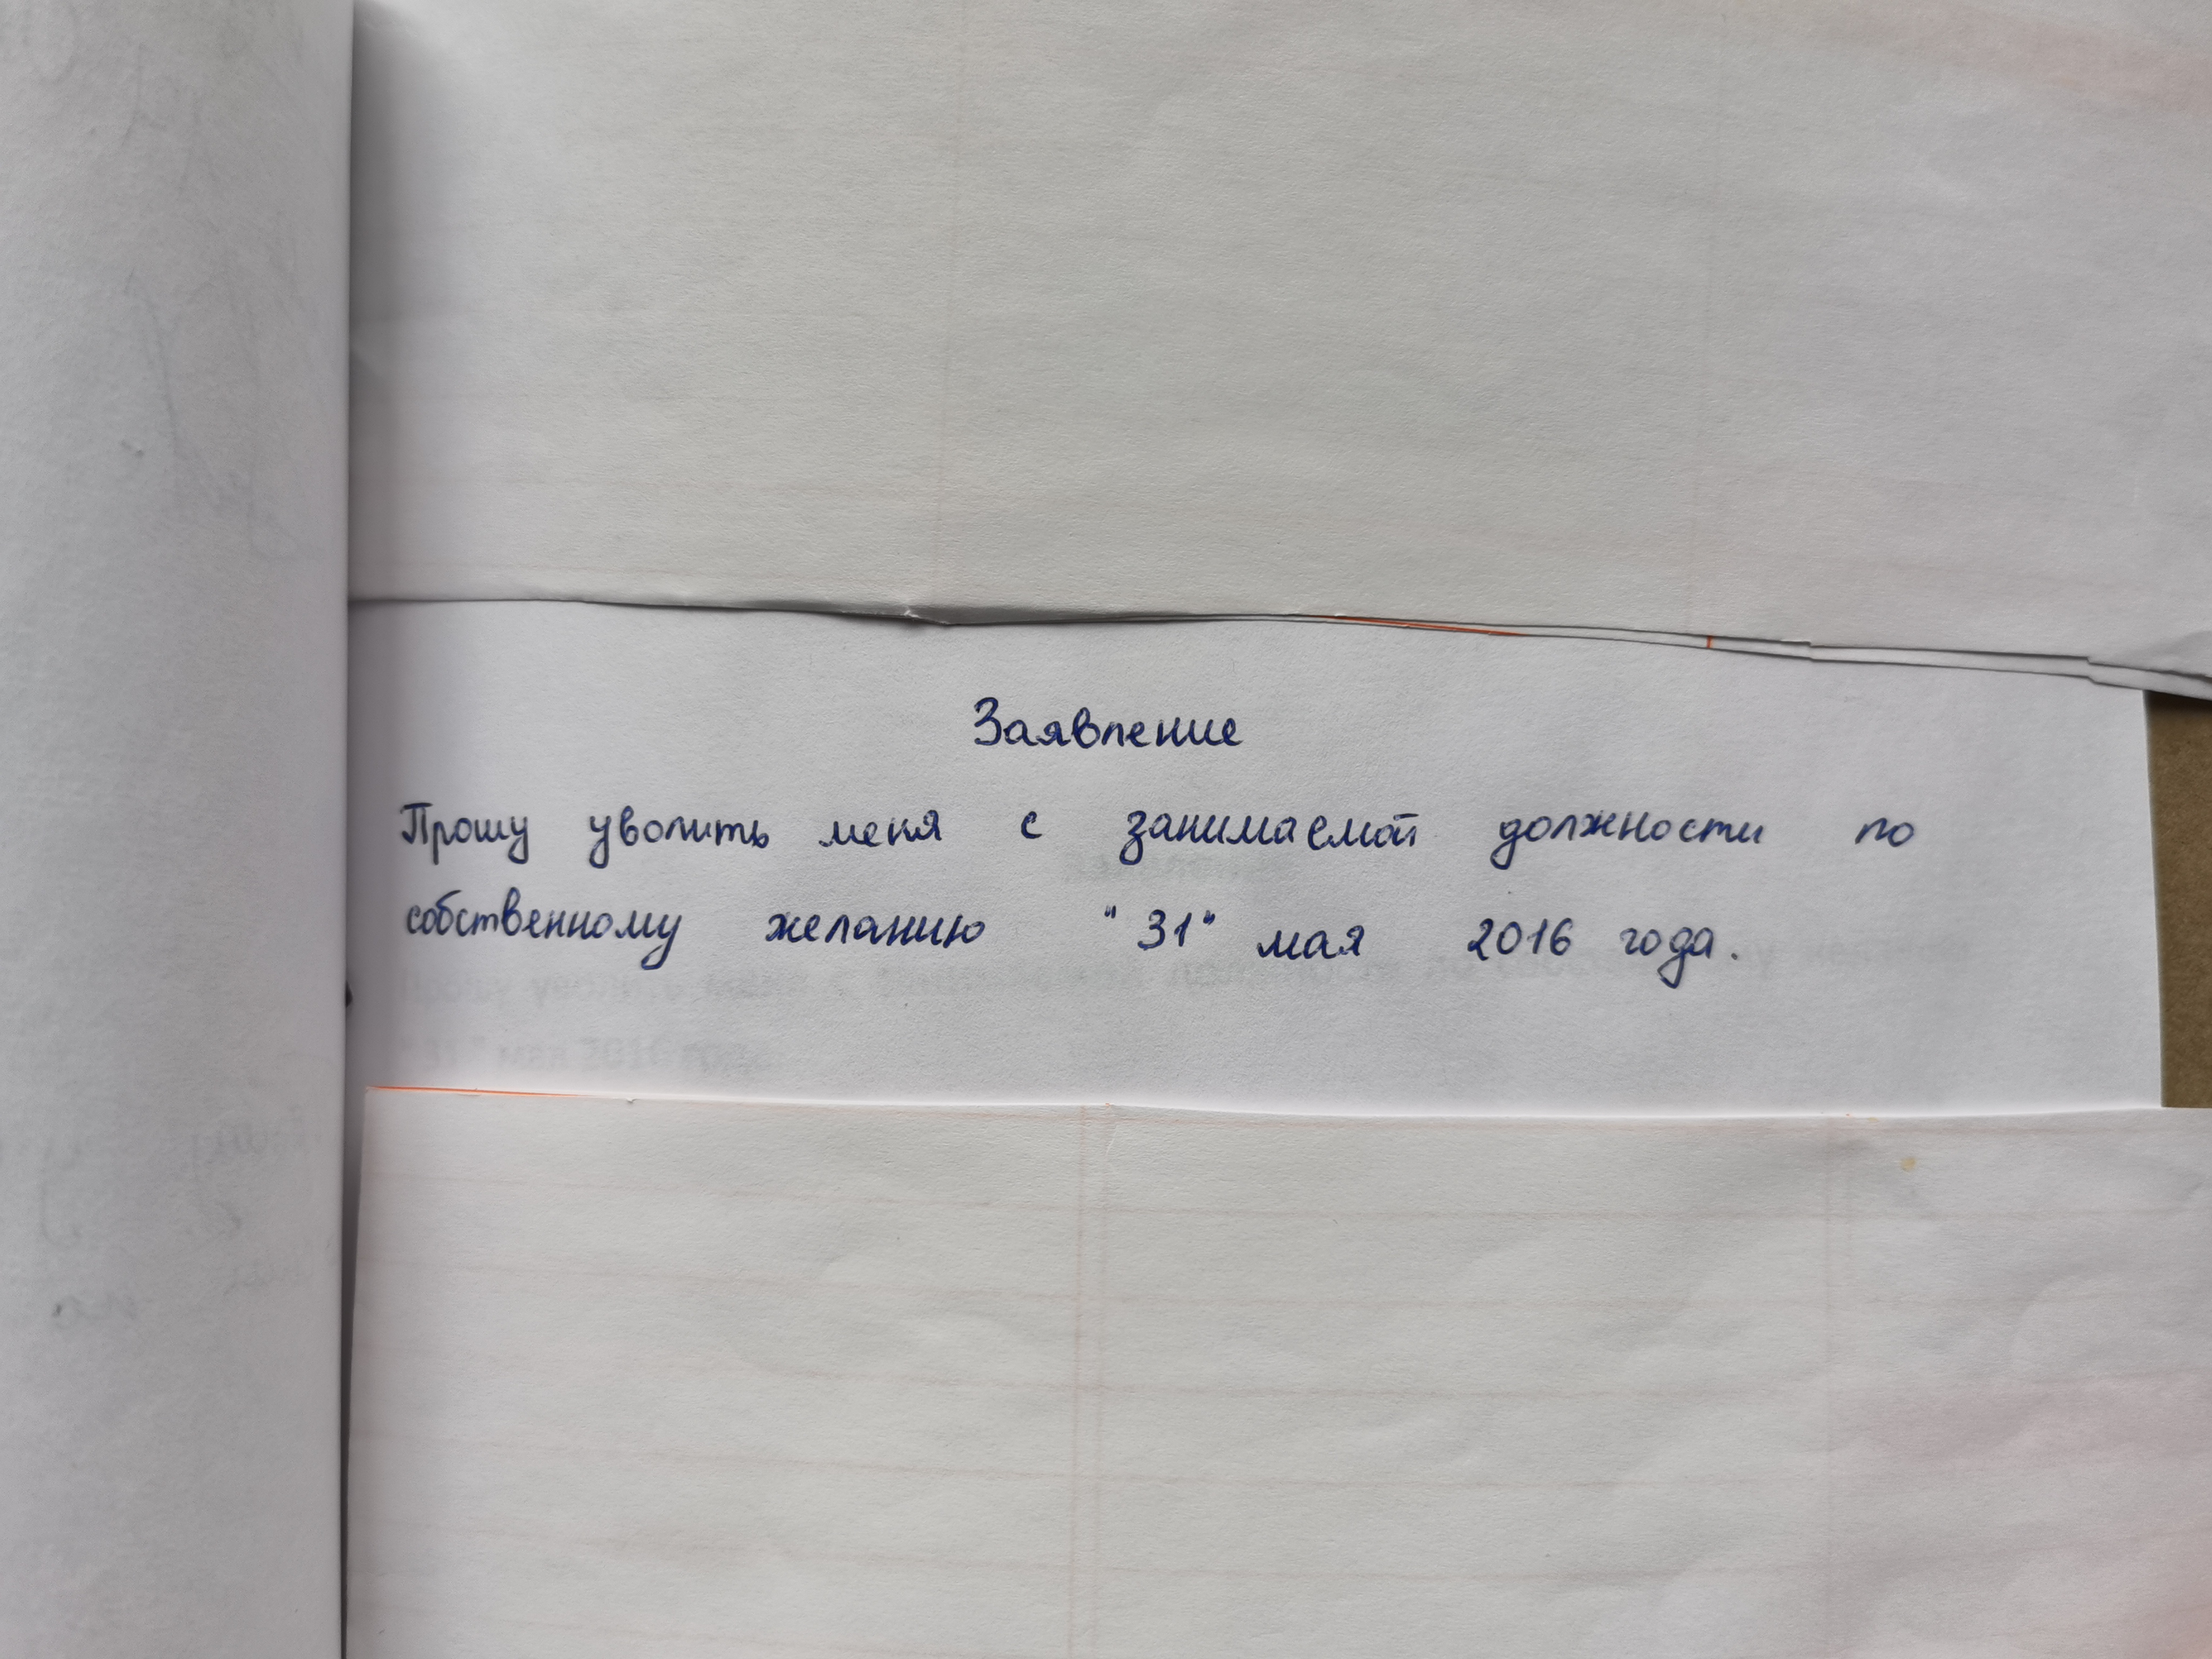 Заявление
Прошу уволить меня с занимаемой должности по
собственному желанию "31" мая 2016 года.